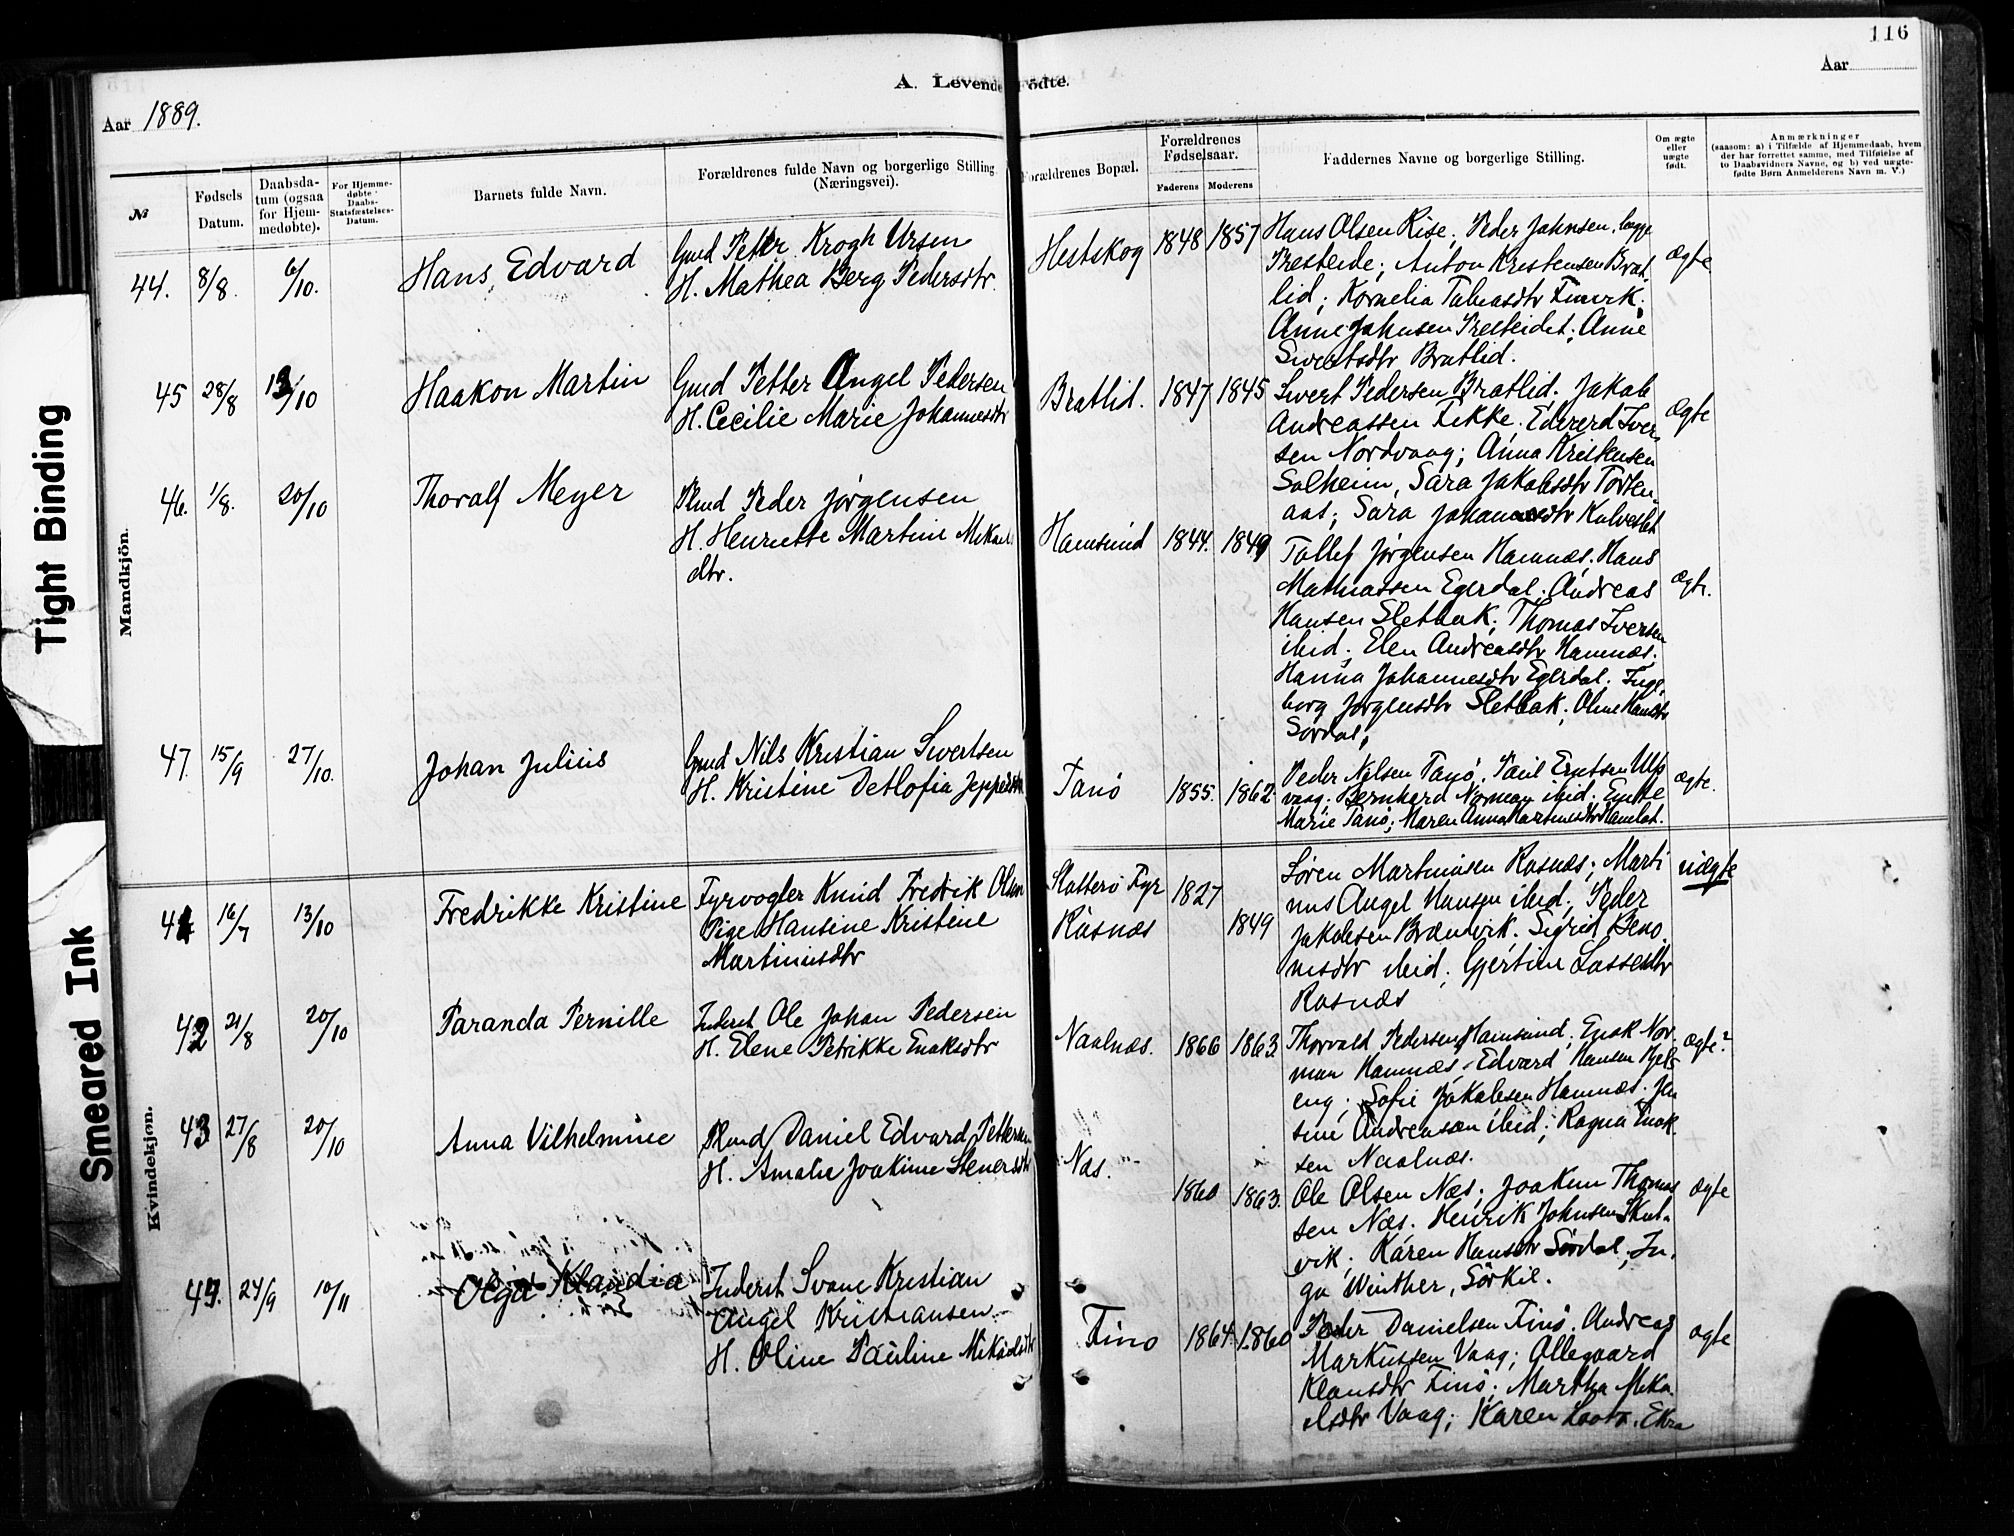 116
A. Levendefödte.
Aar 1889.
Aar
№
Fødsels Datum.
Daabsdatum (ogsaa for Hjemmedøbte).
For Hjemmedøbte Daabs-Statsfæstelses-Datum.
Barnets fulde Navn.
Forældrenes fulde Navn og borgerlige Stilling (Næringsvei).
Forældrenes Bopæl.
Forældrenes Fødselsaar.
Faderens
Moderens
Faddernes Navne og borgerlige Stilling.
Om ægte eller uægte født.
Anmærkninger
(saasom: a) i Tilfælde af Hjemmedaab, hvem der har forrettet samme, med Tilføielse af to Daabsvidners Navne, og b) ved uægtefødte Børn Anmelderens Navn m. V.)
Mandkjön.
44. 8/8. 6/10. Hans Edvard
Gmd Petter Krogh Ursen
H. Mathea Berg Pedersdtr.
Hestskog 1848 1857
Hans Olsen Rise; Peder Johnsen, begge
Presteide; Anton Kristensen Brat
lid; Kornelia Tobiasdtr Finvik.
Anne Johnsen Presteidet; Anne
Sivertsdtr Bratlid.
ægte
45 28/8 13/10 Haakon Martin
Gmd Petter Angel Pedersen
H. Cecilie Marie Johannesdtr
Bratlid. 1847 1845
Sivert Pedersen Bratlid. Jakob
Andreassen Fikke. Edverd Iver
sen Nordvaag; Anna Kristensen
Solheim, Sara Jakobsdtr Torten
aas; Sara Johannesdtr Kalveslet
Ægte
46. 1/8. 20/10 Thoralf Meyer
Plmd Peder Jørgensen
H. Henriette Martine Mikaels
dtr.
Hamsund 1844. 1849
Tollef Jørgensen Hamnæs. Hans
Mathiassen Egerdal; Andreas
Hansen Sletbak; Thomas Iversen
ibid. Elen Andreasdtr Hamnæs.
Hanna Johannesdtr Egerdal. Inge
borg Jørgensdtr Sletbak; Oline Hansdtr
Sørdal;
Ægte.
47. 15/9 27/10. Johan Julius
Gmd Nils Kristian Sivertsen
H. Kristine Detlofia Jeppesdtr
Tanø 1855. 1862
Peder Nilsen Tanø. Paul Erntsen Ulp
vaag; Bernhard Norman ibid. Enkke
Marie Tanø; Maren Anna Martinusdtr Hamlot.
ægte.
Kvindekjøn.
41 16/7 13/10 Fredrikke Kristine
Fyrvogter Knud Fredrik Olsen
Pige Hansine Kristine
Martinusdtr
Slotterø Fyr 1827
Rasnæs 1849
Søren Martinusen Rasnæs; Marti
nus Angel Hansen ibid; Peder
Jakobsen Brændvik. Sigrid Beno
nisdtr ibid; Gjertine Lassesdtr
Rasnæs
uægte
42 21/8 20/10 Paranda Pernille
Inderst Ole Johan Pedersen
H. Elene Petrikke Enoksdtr
Naalnæs. 1866 1863
Thorvald Pedersen Hamsund; Enok Nor
man Hamnæs; Edvard Hansen Hjels
eng; Sofie Jakobsen Hamnæs. Jen
sine Andreasen ibid; Ragna Enok
sen Naalnæs.
ægte?
43 27/8 20/10 Anna Vilhelmine
Plmd Daniel Edvard Pettersen
H. Amalie Joakime Stenersdtr
Næs. 1860 1863.
Ole Olsen Næs; Joakim Thomas
sen Næs. Henrik Johnsen Skut
vik; Karen Hansdtr Sørdal; In
ga Winther, Sørkil.
ægte
49. 24/9 10/11 Olga Klaudia
Inderst Svane Kristian
Angel Kristiansen
H. Oline Pauline Mikaelsdtr
Finø 1864. 1860
Peder Danielsen Finø. Andreas
Markussen Vaag; Ollegaard
Klausdtr Finø. Martha Mika
elsdtr Vaag; Karen Ekra
ægte
Tight Binding
Smeared Ink